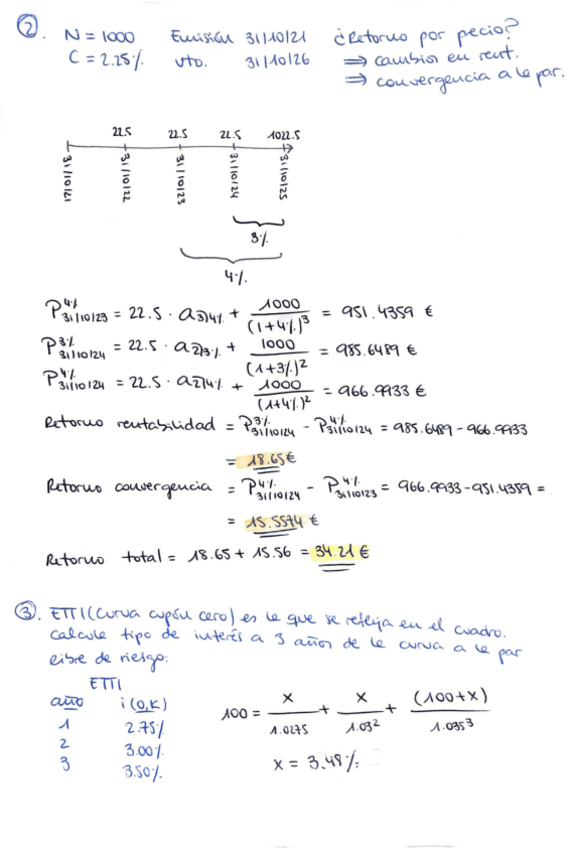 2. N = 1000 Emisión 31/10/21 ¿Retorno por pecio?
C = 2.25% vto. 31/10/26 ⇒ cambios en rent.
⇒ convergencia a la par.
22.5 22.5 22.5 1022.5
31/10/21 31/10/22 31/10/23 31/10/24 31/10/25
3%
4%
P 4% 31/10/23 = 22.5 · a 3|4% + 1000 / (1+4%)^3 = 951.4359 €
P 3% 31/10/24 = 22.5 · a 2|3% + 1000 / (1+3%)^2 = 985.6489 €
P 4% 31/10/24 = 22.5 · a 2|4% + 1000 / (1+4%)^2 = 966.9933 €
Retorno rentabilidad = P 3% 31/10/24 - P 4% 31/10/24 = 985.6489 - 966.9933
= 18.65 €
Retorno convergencia = P 4% 31/10/24 - P 4% 31/10/23 = 966.9933 - 951.4359 =
= 15.5574 €
Retorno total = 18.65 + 15.56 = 34.21 €
3. ETTI (Curva cupón cero) es la que se refleja en el cuadro.
Calcule tipo de interés a 3 años de la curva a la par
libre de riesgo:
ETTI
año i(0,K)
1 2.75%
2 3.00%
3 3.50%
100 = x / 1.0275 + x / 1.03^2 + (100+x) / 1.035^3
x = 3.48%